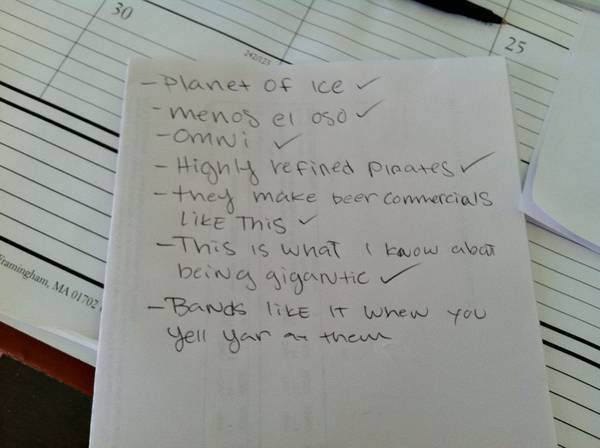 30
25
242/123
- Planet of Ice ✓
- menos el oso ✓
- OMNi ✓
- Highly refined pirates ✓
- they make beer commercials
LIKE THIS ✓
- This is what I know about
being gigantic ✓
- Bands like it when you
yell yar at them
Framingham, MA 01702